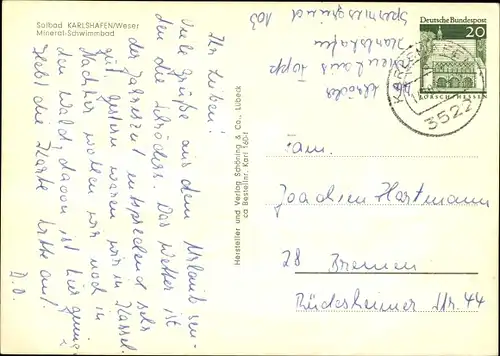 Solbad KARLSHAFEN/Weser
Mineral-Schwimmbad
Ihr Lieben!
Viele Grüße aus dem Urlaub sen-
den die Schröders. Das Wetter ist
der Jahreszeit entsprechend sehr
gut, gestern waren wir in Kassel.
Nachher wollen wir noch in
den Wald, davon ist hier genug.
Hebt die Karte bitte auf.
D.O.
Hersteller und Verlag Schöning & Co., Lübeck
ca Bestellnr. Karl 160-t
Schröder
Haus Topp
Karlshafen
103
Deutsche Bundespost
20
LORSCH/HESSEN
KARLSHAFEN
3522
Fam.
Joachen Hartmann
28 Bremen
Rüdesheimer Str. 44